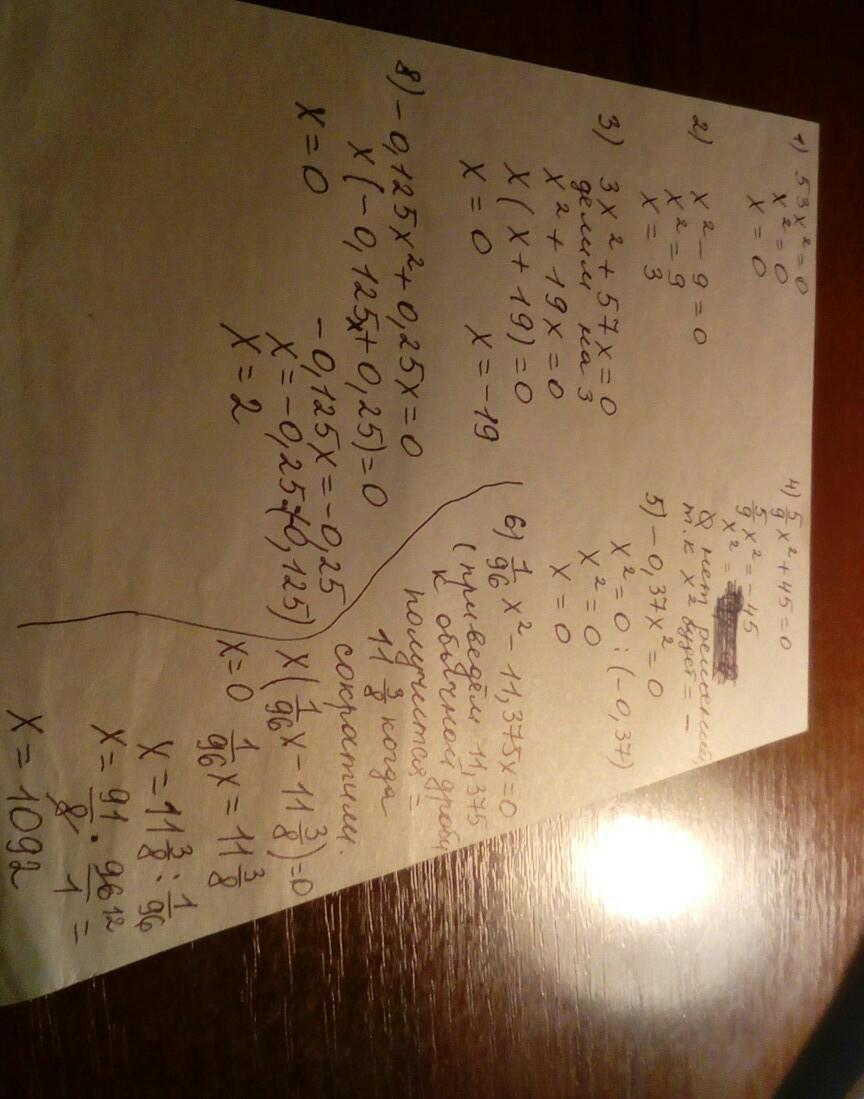 1) 53x²=0
x²=0
x=0
2) x²-9=0
x²=9
x=3
3) 3x²+57x=0
делим на 3
x²+19x=0
x(x+19)=0
x=0 x=-19
8) -0,125x²+0,25x=0
x(-0,125x+0,25)=0
x=0 -0,125x=-0,25
x=-0,25:(-0,125)
x=2
4) 5/9 x²+45=0
5/9 x²=-45
x²=-
нет решений,
т.к x² будет = -
5) -0,37x²=0
x²=0:(-0,37)
x²=0
x=0
6) 1/96 x²-11,375x=0
(приведём 11,375
к обычной дроби
получится =
11 3/8 когда
сократим.
x(1/96 x-11 3/8)=0
x=0 1/96 x=11 3/8
x=11 3/8 : 1/96
x=91/8 · 96 12/1 =
x=1092